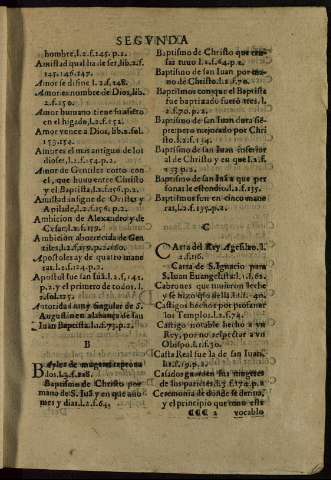 SEGVNDA
hombre, l.2.f.145.p.2.
Amistad qual ha de ser, lib.2.
f.145.146.147.
Amor se difine l.2.f.148.
Amor es nombre de Dios, lib.
2.f.150.
Amor humano tiene su asiẽto
en el higado, l.2.f.152.
Amor vence a Dios, l.2.fol.
159.150.
Amor es el mas antiguo de los
dioses, l.2.f.154.p.2.
Amor de Gentiles
el, que huuo entre Christo
y el Baptista, l.2.f.156.p.2.
Amistad insigne de Orestes y
l.2.f.156.p.2.
Ambicion de Alexandro y de
Cesar, l.2.f.159.
Ambicion aborrecida de Gen
tiles, l.2.f.159.p.2.
Apostoles ay de quatro mane
ras l.2.f.124.p.2.
Apostol fue san Iuã l.2.f.142.
p.2. y el primero de todos, l.
2.fol.127.
Autoridad muy singular de S.
Augustin en alabança de san
Iuan Baptista. l.2.f.73.p.2.
B
Bayles de mugeres reproua
dos. l.3.f.228.
Baptismo de Christo por
mano de S. Iuã y en que año
mes y dia. l.2.f.64.
Baptismo de Christo que
sas tuuo l.2.f.64.p.2.
Baptismo de san Iuan por ma
no de Christo. l.2.f.70.
Baptismos con que el Baptista
fue baptizado fuerõ tres, l.
2.f.70.p.2.
Baptismo de san Iuan
pre pero mejorado por Chri
sto. l.2.f.134.
Baptismo de san Iuan inferior
al de Christo y en que l.2.f.
133.p.2.
Baptismo de san Iuan a que per
sonas se estendio l.2.f.135.
Baptismos son en cinco mane
ras, l.2.f.135.p.2.
C
Carta del Rey Agesilao. l.
2.f.116.
Carta de S. Ignacio para
S. Iuan Euangelista l.
Cabrones que murieron leche
y se hizo
Castigos hechos por profanar
los Templos. l.2.f.74.
Castigo notable hecho a vn
Rey, por no respectar a vn
Obispo. l.2.f.30.
Casta Real fue la de san Iuan,
l.2.f.19.p.2.
Casados guarden sus mugeres
de sus pariẽtes, l.3.f.174.p.2.
Ceremonia de donde se deriua,
y el principio que tuuo este
CCC 2 vocablo